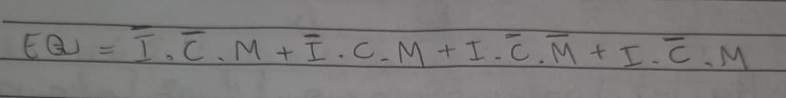 EQ = I̅ . C̅ . M + I̅ . C . M + I . C̅ . M̅ + I . C̅ . M